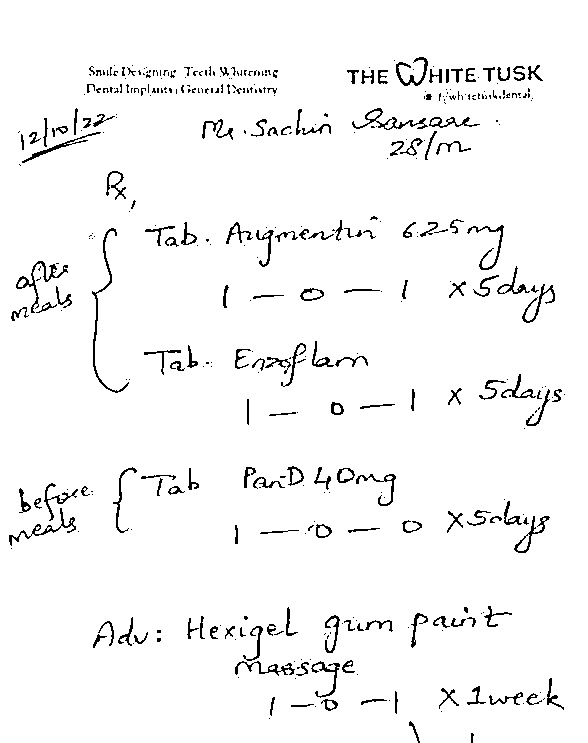 Smile Designing Teeth Whitening
Dental Implants General Dentistry
THE WHITE TUSK
/whitetuskdental
12/10/22
Mr. Sachin Sansare.
28/M
Rx,
after meals
Tab. Augmentin 625mg
1 — 0 — 1 x 5 days
Tab. Enzoflam
1 — 0 — 1 x 5 days
before meals
Tab PanD 40mg
1 — 0 — 0 x 5 days
Adv: Hexigel gum paint
massage
1 — 0 — 1 x 1 week